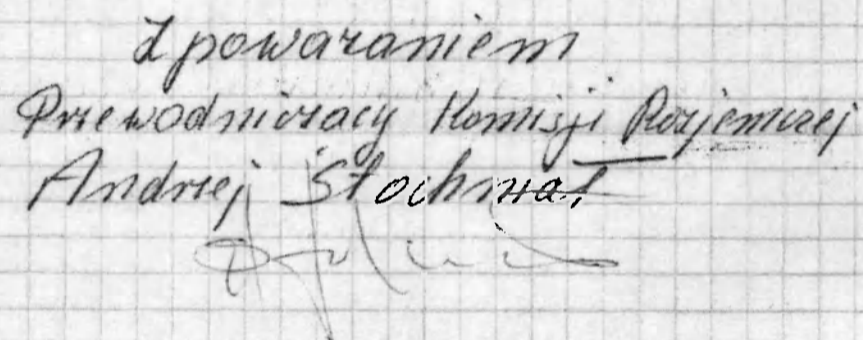 Z poważaniem
Przewodniczący Komisji Rozjemczej
Andrzej Stochmal